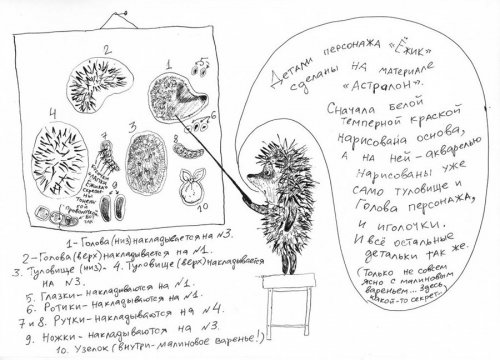 2
1
5
6
4
7
3
8
9
10
1-Голова (низ) накладывается на №3.
2-Голова (верх) накладывается на №1.
3. Туловище (низ)- 4. Туловище (верх) накладывается
на №3.
5. Глазки-накладываются на №1.
6. Ротики-накладываются на №1.
7 и 8. Ручки-накладываются на №4.
9. Ножки-накладываются на №3.
10. Узелок (внутри-малиновое варенье!)
Детали персонажа «Ёжик»
сделаны на материале
«Астралон».
Сначала белой
темперной краской
нарисована основа,
а на ней-акварелью
нарисованы уже
само туловище и
голова персонажа,
и иголочки.
И всё остальные
детальки так же.
(Только не совсем
ясно с малиновым
вареньем... Здесь
какой-то секрет...)